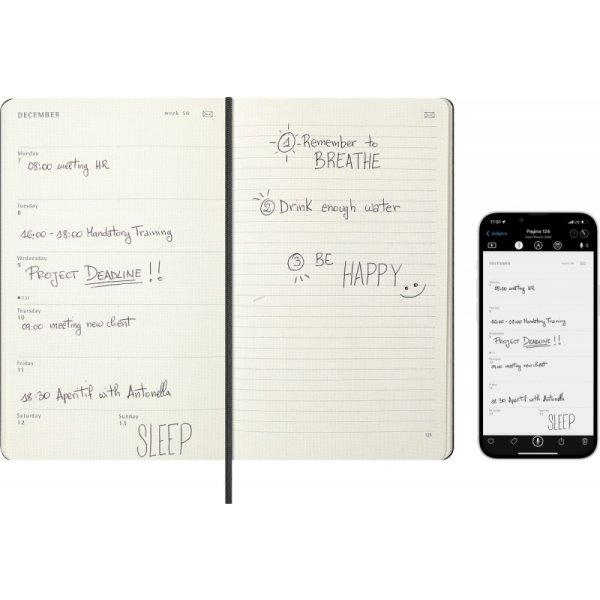 DECEMBER week 50
Monday
7
08:00 meeting HR
Tuesday
8
16:00 - 18:00 Mandatory Training
Wednesday
9
PROJECT DEADLINE !!
Thursday
10
09:00 meeting new client
Friday
11
18:30 Aperitif with Antonella
Saturday
12
Sunday
13
SLEEP
1 - Remember to
BREATHE
2 Drink enough water
3 BE
HAPPY
125
17:03
Pagina 124
08:00 meeting HR
16:00 - 18:00 Mandatory Training
PROJECT DEADLINE !!
09:00 meeting new client
18:30 Aperitif with Antonella
SLEEP